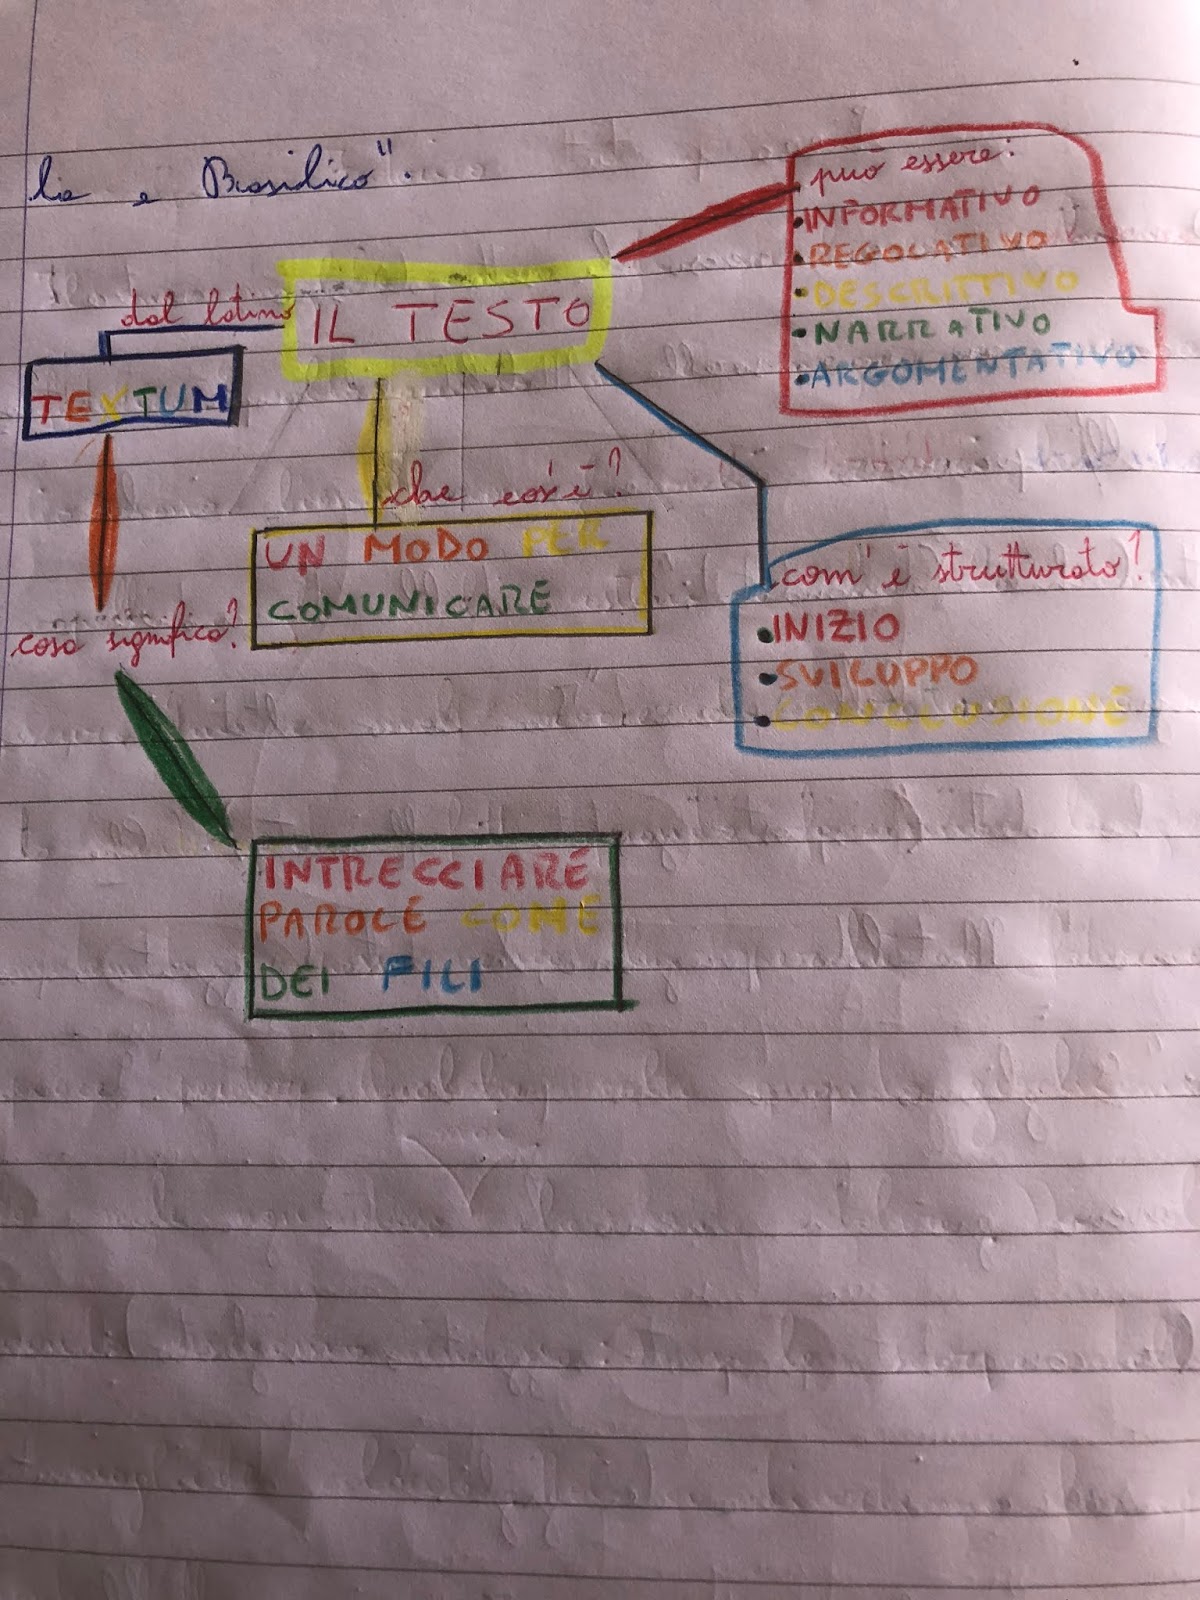 lia e Basilico".
può essere:
• INFORMATIVO
• REGOLATIVO
• DESCRITTIVO
• NARRATIVO
• ARGOMENTATIVO
IL TESTO
dal latino
TEXTUM
che cos'è?
UN MODO PER
COMUNICARE
com'è strutturato?
• INIZIO
• SVILUPPO
• CONCLUSIONE
cosa significa?
INTRECCIARE
PAROLE COME
DEI FILI